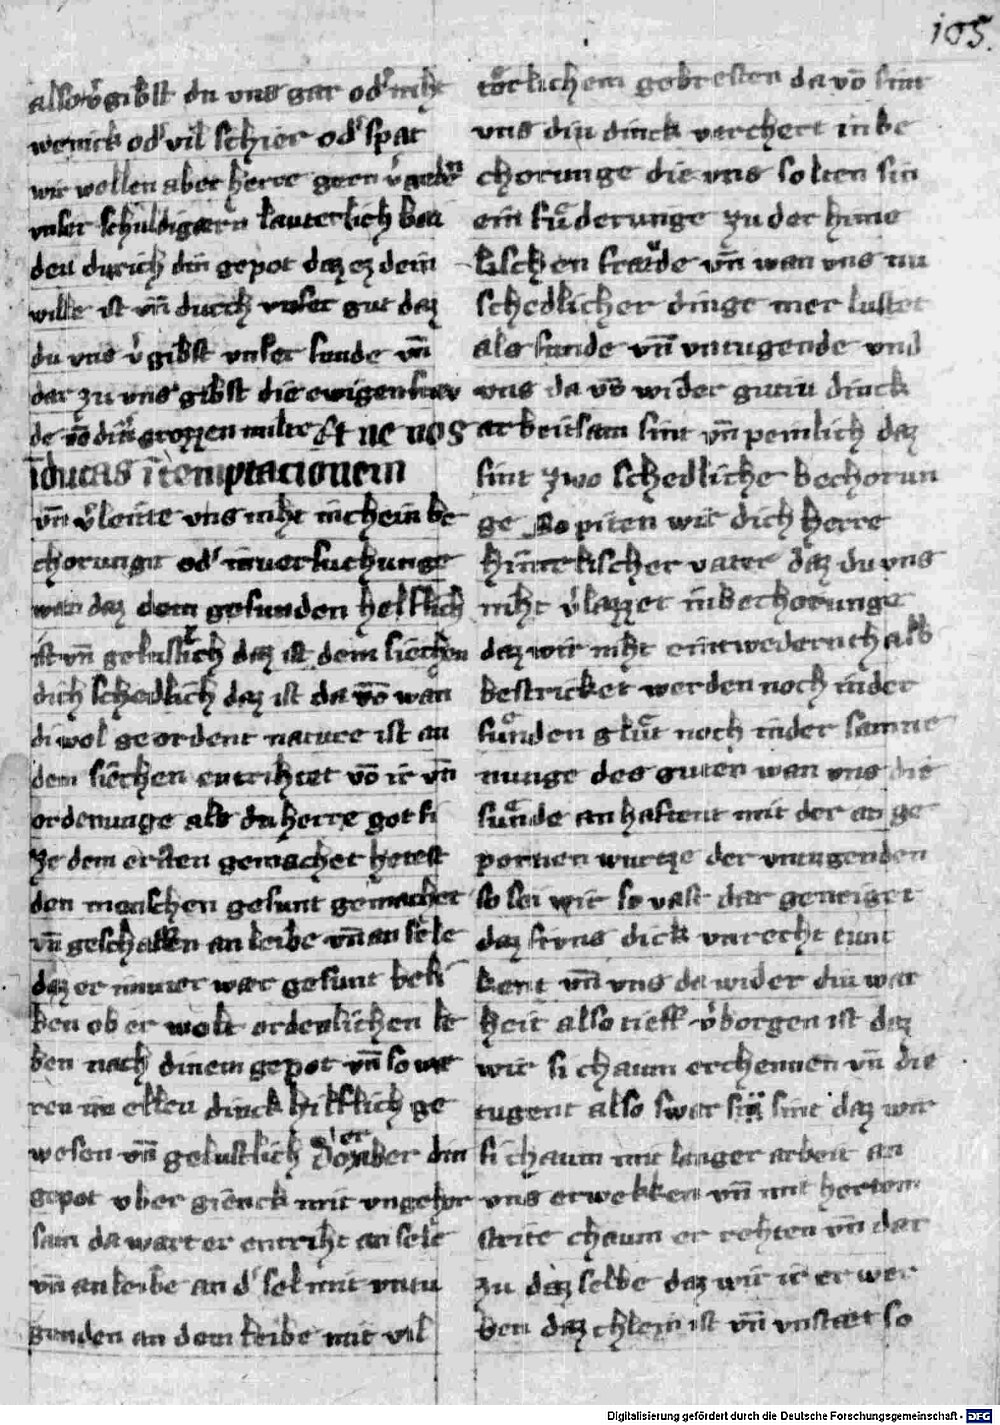 105.
also v͛gibst du uns gar od͛ niht
wenick od͛ vil schier od͛ spat
wir wollen aber herre gern v͛geben
unser schuldigærn lauterlich bei
deu durich din gepot daz ez dein
wille ist vn̄ durch unser gut daz
du uns v͛gibst unser sunde vn̄
dar zu uns gibst die ewigen frev
de vō din͛ grozzen milte Et ne nos
īducas ī temptacionem
vn̄ v͛leitte uns niht in chein be
chorunge od͛ in versuchunge
wan daz dem gesunden helflich
ist vn̄ gelustlich daz ist dem siechen
dich schedlich daz ist da vō wan
di wol geordent nature ist an
dem siechen entrihtet vō ir vn̄
ordenunge als du herre got si
ze dem ersten gemachet hetest
den menschen gesunt gemachet
vn̄ geschaffen an leibe vn̄ an sele
daz er immer wær gesunt beli
ben ob er wolt ordenlichen le
ben nach dinem gepot vn̄ so we
ren im elleu dinck hilflich ge
wesen vn̄ gelustlich do er aber din
gepot uber gienck mit ungehor
sam da wart er entriht an sele
vn̄ an leibe an d͛ sel mit untu
genden an dem leibe mit vil
tötlichem gebresten da vō sint
uns diu dinck verchert in be
chorunge die uns solten sin
ein fuͤderunge zu der hime
lischen fraͤude vn̄ wan uns nu
schedlicher dinge mer lustet
als sunde vn̄ untugende und
uns da vō wider gutiu dinck
arbeitsam sint vn̄ peinlich daz
sint zwo schedliche bechorun
ge So piten wir dich herre
himelischer vater daz du uns
niht v͛lazzet in bechorunge
daz wir niht eintwederthalb
bestricket werden noch in der
sunden gluͤt noch in der samne
nunge des guten wan uns die
suͤnde an haftent mit der an ge
pornen wurtze der untugenden
so sei wir so vast dar geneiget
daz si uns dick unrecht tunt
kent vn̄ uns da wider diu war
heit also tieff v͛borgen ist daz
wir si chaum erchennen vn̄ die
tugent also swær sint daz wir
si chaum mit langer arbeit an
uns erwekken vn̄ mit hertem
strite chaum er rehten vn̄ dar
zu daz selbe daz wir ir erwer
ben daz chlein ist vn̄ unstæt so
Digitalisierung gefördert durch die Deutsche Forschungsgemeinschaft - DFG